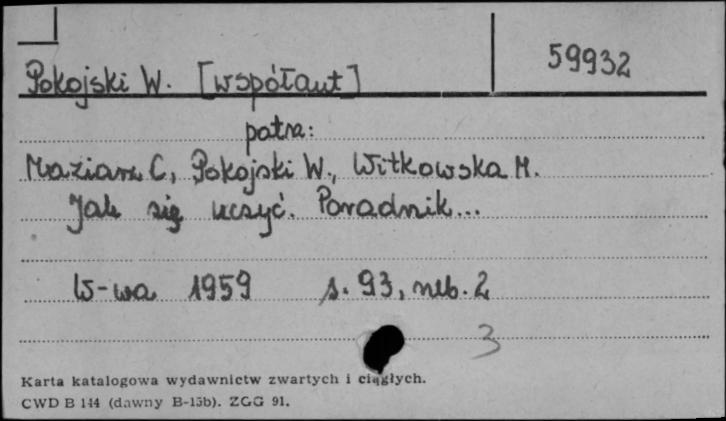 Pokojski W. [współaut] 59932
patrz:
Maziarz C., Pokojski W., Witkowska M.
Jak się uczyć. Poradnik...
W-wa 1959 s. 93, nlb. 2
3
Karta katalogowa wydawnictw zwartych i ciągłych.
CWD B 144 (dawny B-15b). ZGG 91.